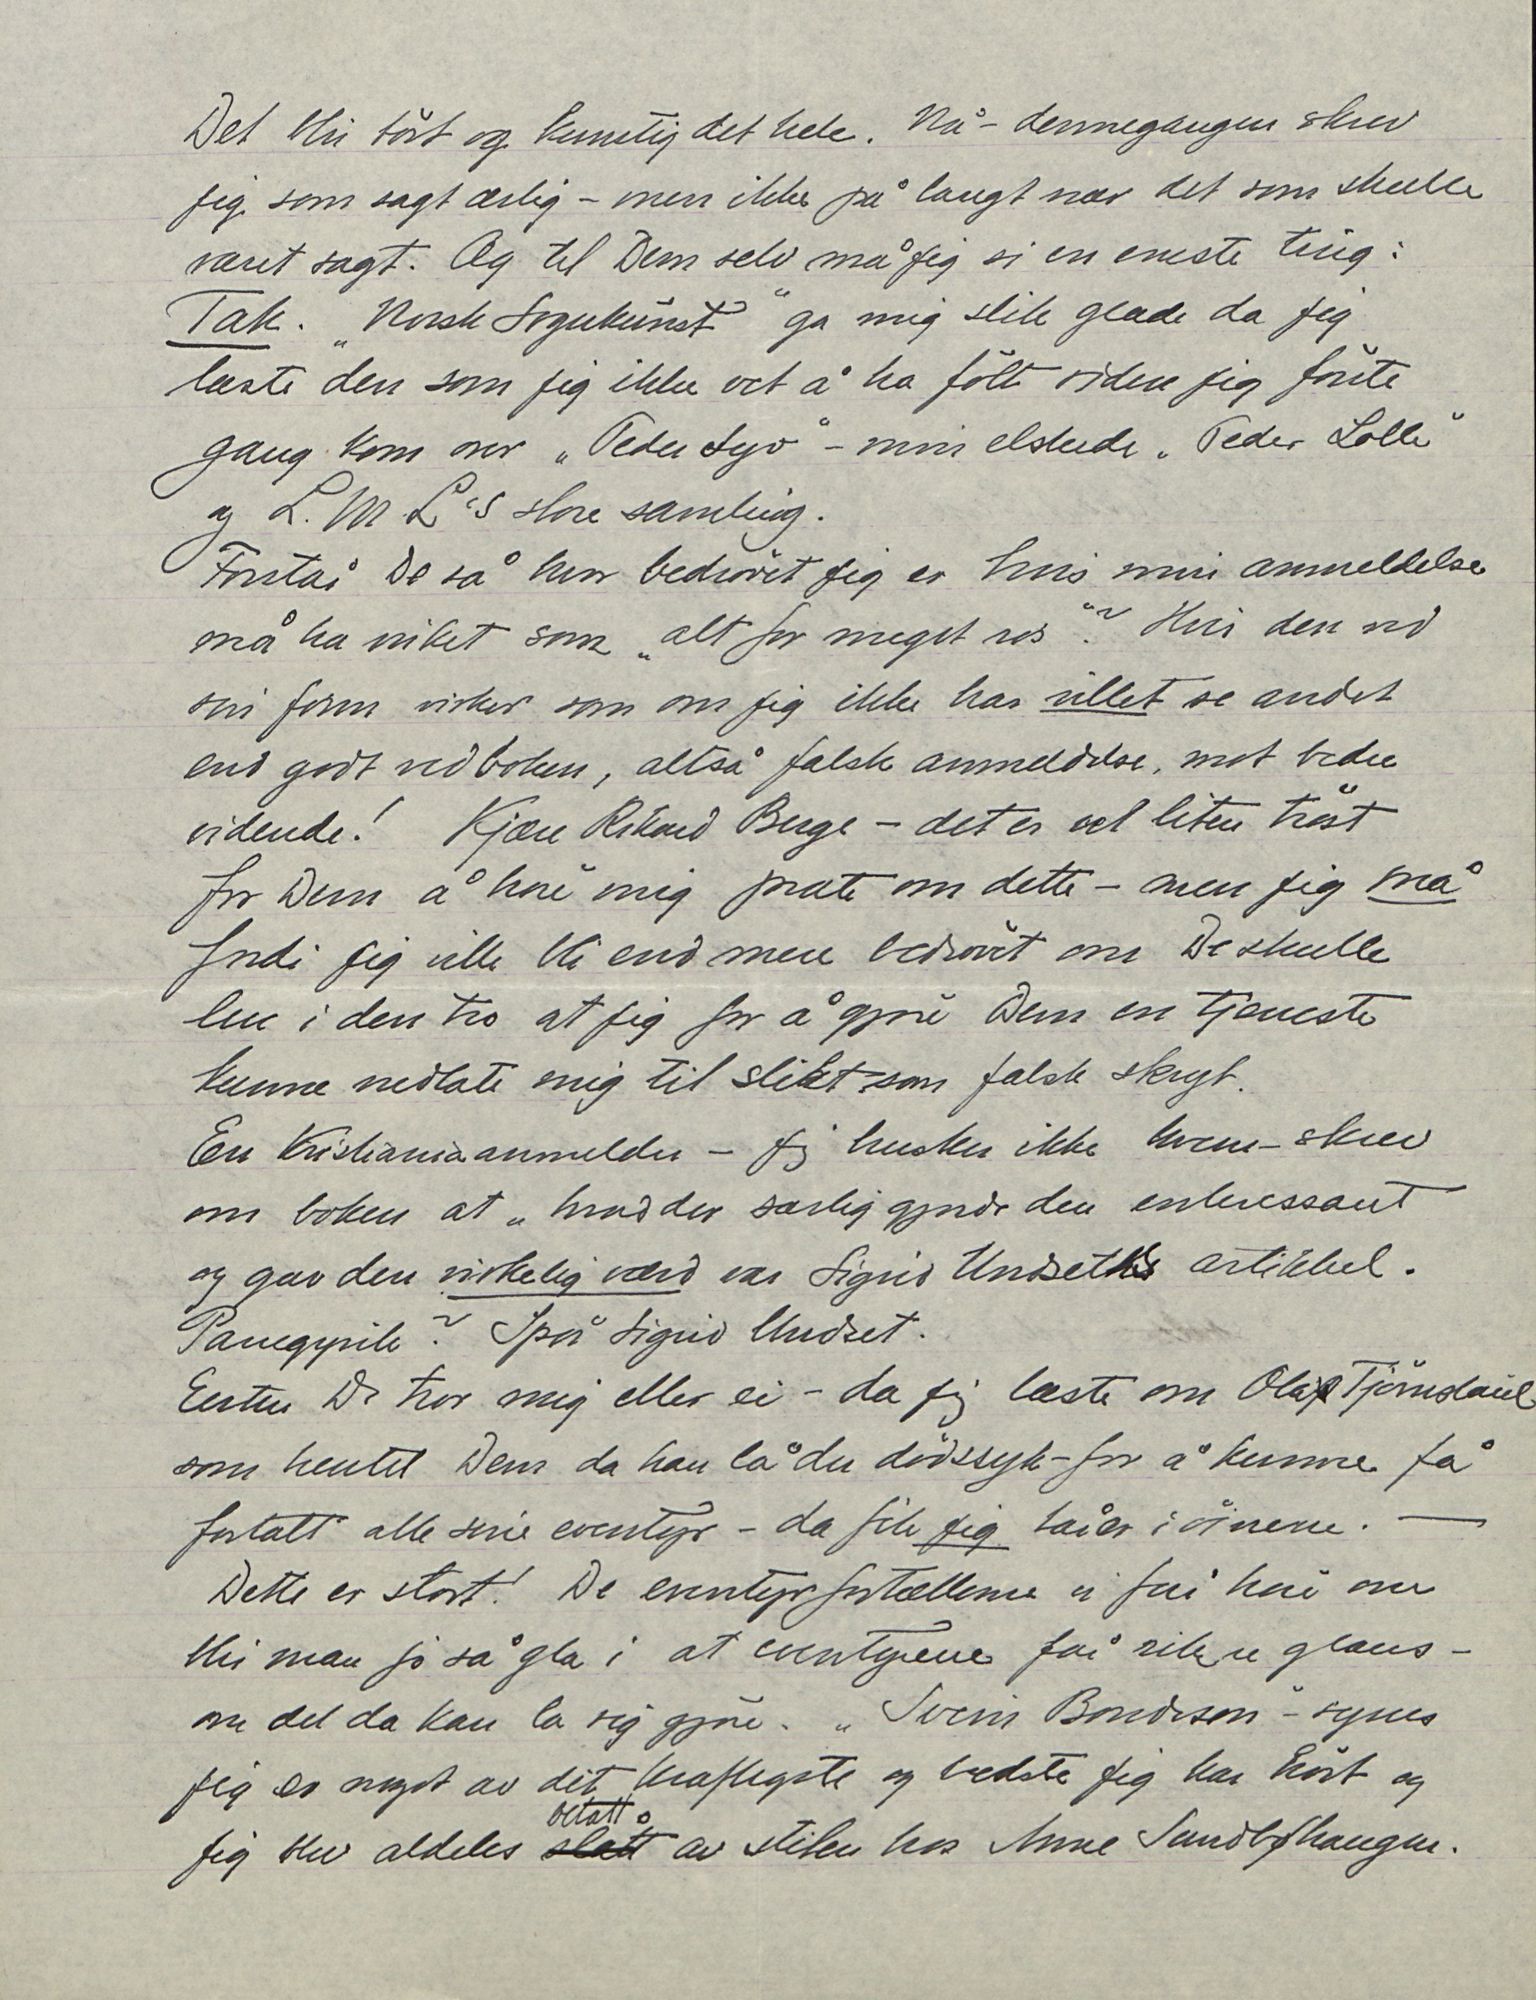 Det blir tört og kunstig det hele. Nå – dennegangen skrev
jeg som sagt ærlig – men ikke på langt nær det som skulle
været sagt. Og til Dem selv må jeg si en eneste ting:
Tak. „Norsk Sogukunst" ga mig slik glæde da jeg
læste den som jeg ikke vet å ha fölt siden jeg förste
gang kom over „Peder Syv" – min elskede „Peder Lolle"
og L. M L's store samling.
Forstår De så hvor bedrövet jeg er hvis min anmeldelse
må ha virket som „alt for meget ros"? Hvis den ved
sin form virker som om jeg ikke har villet se andet
end godt ved boken, altså falsk anmeldelse, mot bedre
vidende! Kjære Rikard Berge – det er vel liten tröst
for Dem å höre mig prate om dette – men jeg må
fordi jeg ville bli end mere bedrövet om De skulle
leve i den tro at jeg for å gjöre Dem en tjeneste
kunne nedlate mig til slikt som falsk skryt.
En Kristiania anmelder – jeg husker ikke hvem – skrev
om boken at „hvad der særlig gjorde den interessant
og gav den virkelig værd var Sigrid Undseths artikkel.
Panegyrik? Spör Sigrid Undset.
Enten De tror mig eller ei – da jeg læste om Olaf Tjönnstaul
som hentet Dem da han lå der dödssyk – for å kunne få
fortalt alle sine eventyr – da fik jeg tårer i öinene. —
Dette er stort! De eventyrfortællerne vi får höre om
blir man jo så gla i at eventyrene får rikere glans –
om det da kan la sig gjöre. „Svein Bondeson" – synes
jeg er noget av det kraftigste og bedste jeg har hört og
jeg blev aldeles slått betatt av stilen hos Anne Sundböhaugen.